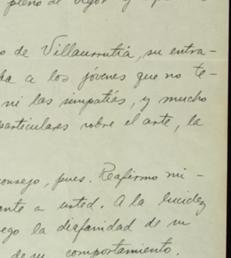 pleno de vigor y
o de Villaurrutia, su entra-
a a los jóvenes que no te-
ni las simpatías, y mucho
particulares sobre el arte, la
consejo, pues. Reafirmo mi-
ente a usted. A la lucidez
ego la diafanidad de su
de su comportamiento.